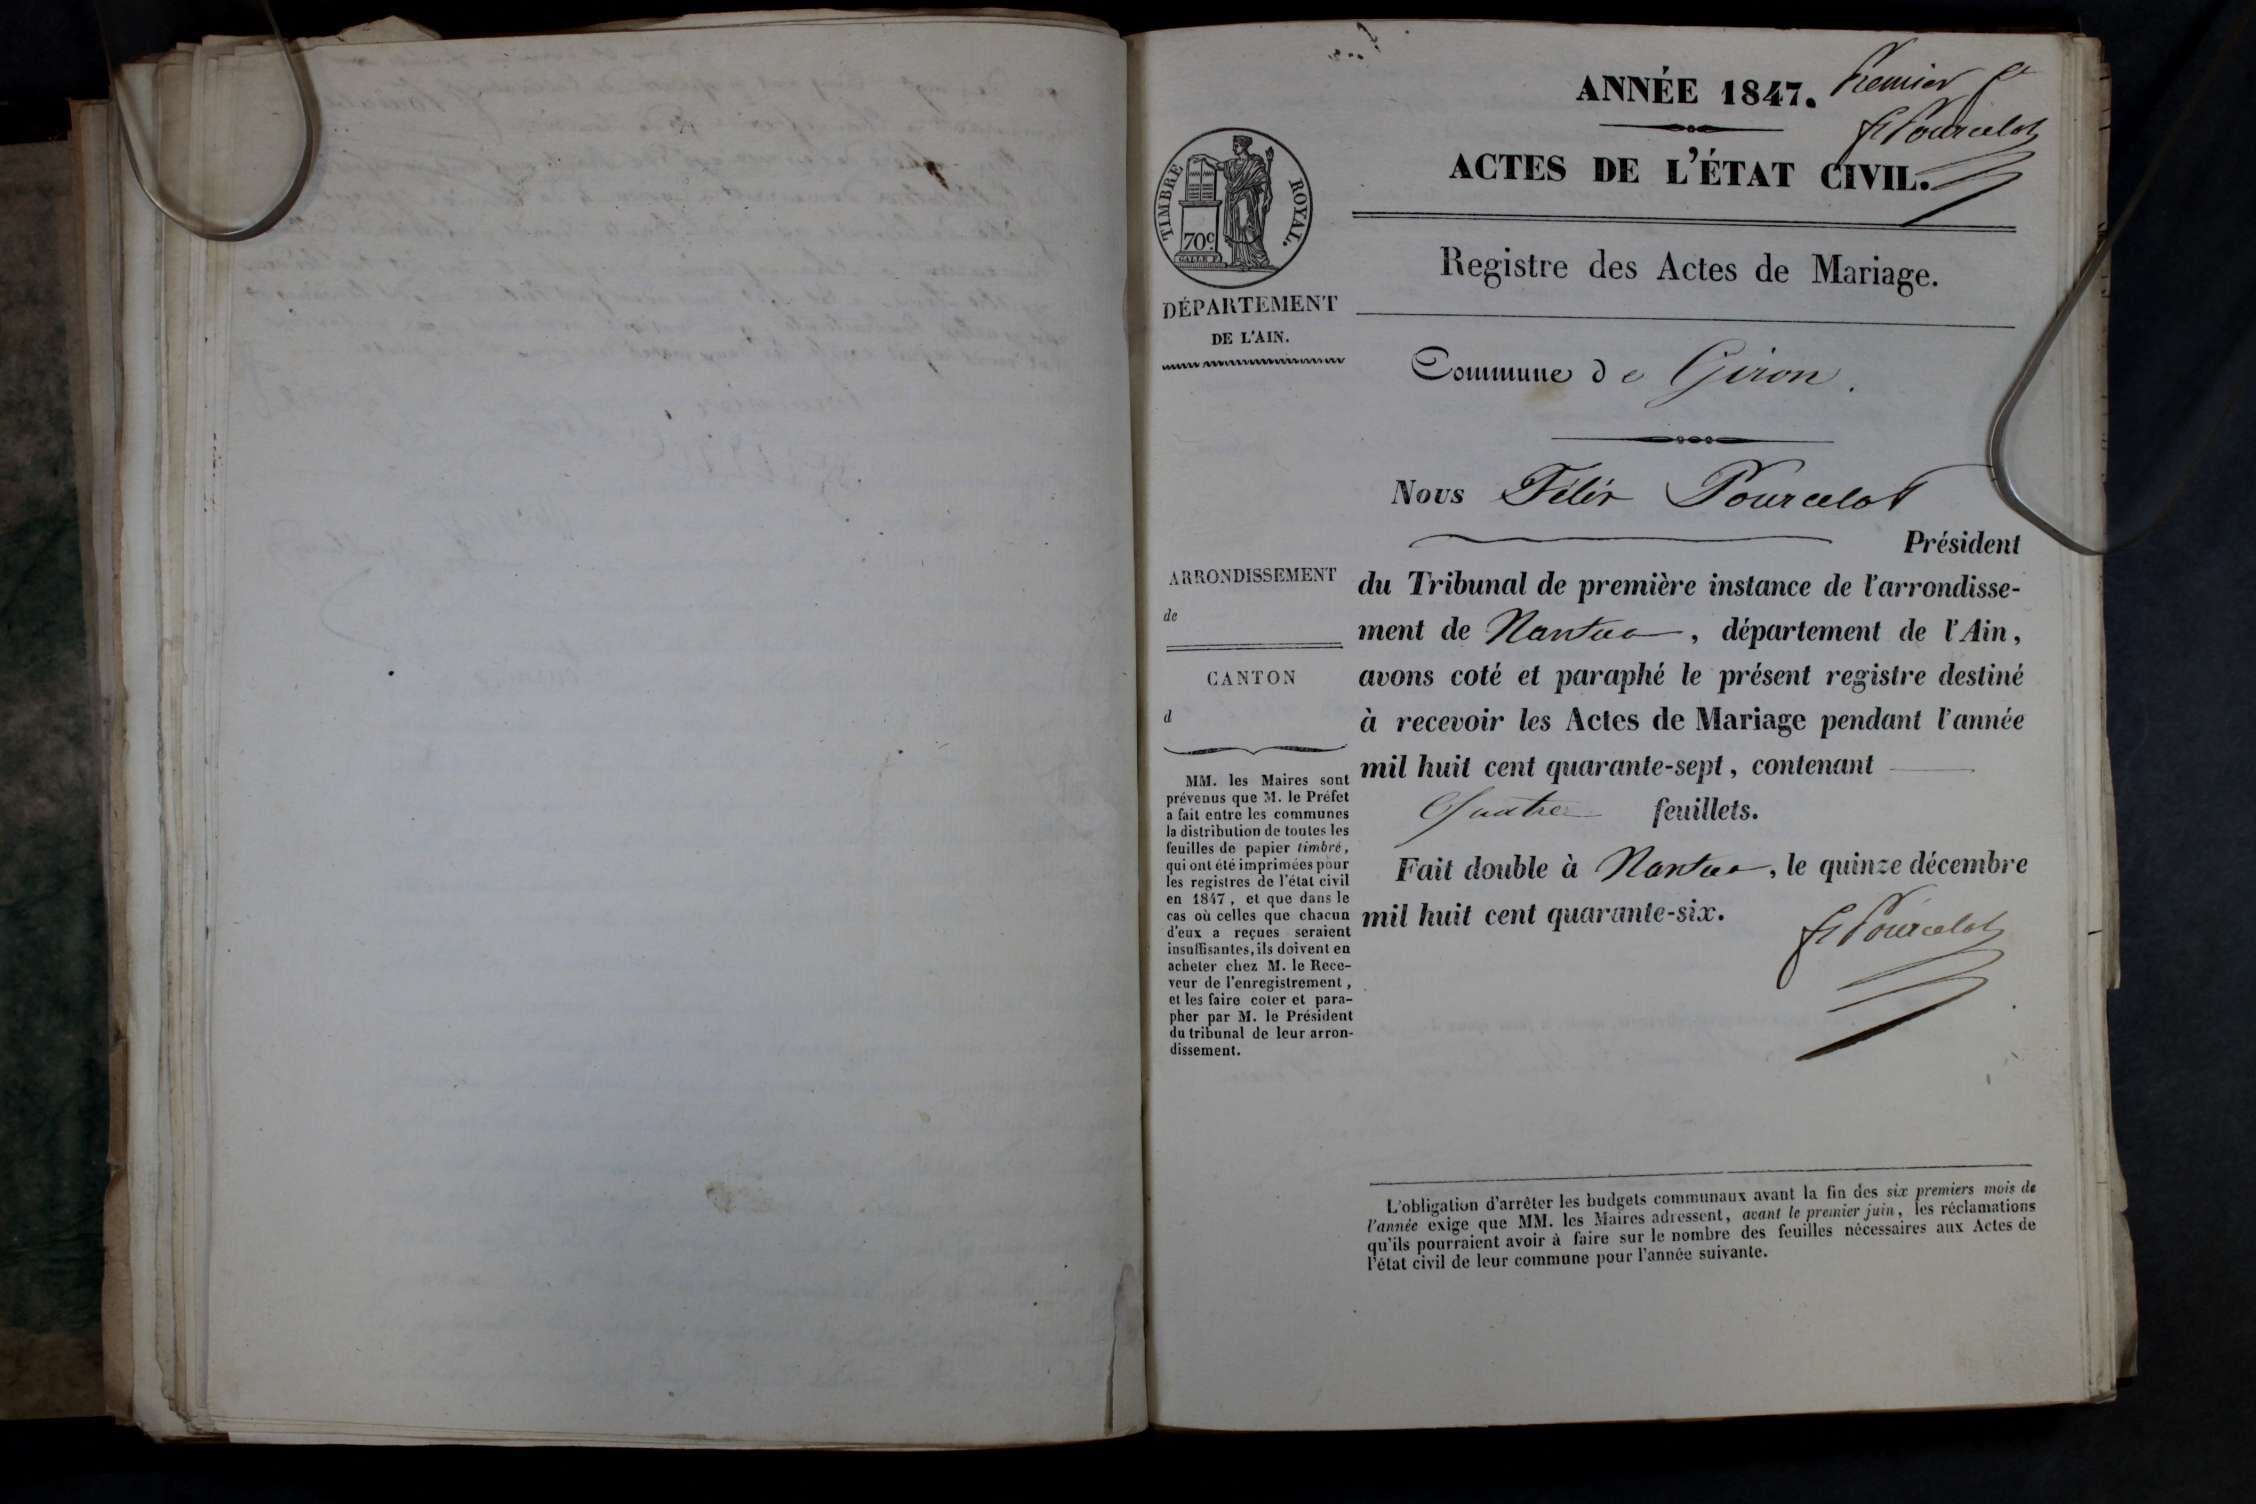 ANNÉE 1847.
Premier
Pourcelot
ACTES DE L'ÉTAT CIVIL.
TIMBRE ROYAL.
70c
Registre des Actes de Mariage.
DÉPARTEMENT
DE L'AIN.
Commune de Giron.
Nous Félix Pourcelot
Président
du Tribunal de première instance de l'arrondisse-
ment de Nantua, département de l'Ain,
avons coté et paraphé le présent registre destiné
à recevoir les Actes de Mariage pendant l'année
mil huit cent quarante-sept, contenant
Quatre feuillets.
Fait double à Nantua, le quinze décembre
mil huit cent quarante-six.
Pourcelot
ARRONDISSEMENT
de
CANTON
d
MM. les Maires sont
prévenus que M. le Préfet
a fait entre les communes
la distribution de toutes les
feuilles de papier timbré,
qui ont été imprimées pour
les registres de l'état civil
en 1847, et que dans le
cas où celles que chacun
d'eux a reçues seraient
insuffisantes, ils doivent en
acheter chez M. le Rece-
veur de l'enregistrement,
et les faire coter et para-
pher par M. le Président
du tribunal de leur arron-
dissement.
L'obligation d'arrêter les budgets communaux avant la fin des six premiers mois de
l'année exige que MM. les Maires adressent, avant le premier juin, les réclamations
qu'ils pourraient avoir à faire sur le nombre des feuilles nécessaires aux Actes de
l'état civil de leur commune pour l'année suivante.